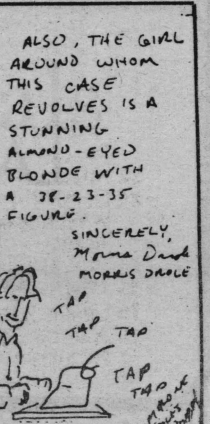 ALSO, THE GIRL
AROUND WHOM
THIS CASE
REVOLVES IS A
STUNNING
ALMOND-EYED
BLONDE WITH
A 38-23-35
FIGURE.
SINCERELY,
Morris Drole
MORRIS DROLE
TAP
TAP
TAP
TAP
TAP